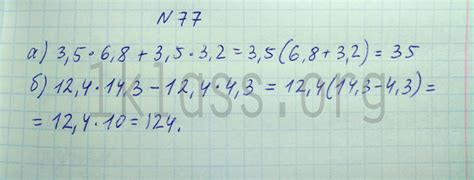 N 77
а) 3,5 · 6,8 + 3,5 · 3,2 = 3,5 (6,8 + 3,2) = 35
б) 12,4 · 14,3 - 12,4 · 4,3 = 12,4 (14,3 - 4,3) =
= 12,4 · 10 = 124.
1klass.org